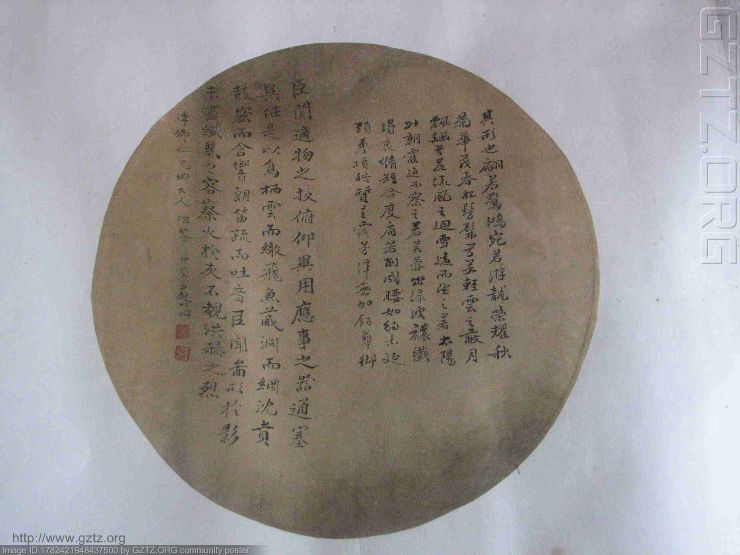 其形也翩若驚鴻宛若游龍榮耀秋
菊華茂春松髣髴兮若輕雲之蔽月
飄颻兮若流風之迴雪遠而望之若太陽
升朝霞迫而察之若芙蓉出淥波穠纖
得衷脩短合度肩若削成腰如約素延
頸秀項皓質呈露芳澤無加鉛華御
臣聞適物之技俯仰異用應事之器通塞
異任是以鳥栖雲而繳飛魚藏淵而網沈賁
鼓密而含響朗笛疏而吐音臣聞圖形於影
未盡纖麗之容察火於灰不覩洪赫之烈
仁兄鄉大人
GZTZ.ORG
http://www.gztz.org
Image ID 1782421948437500 by GZTZ.ORG community poster